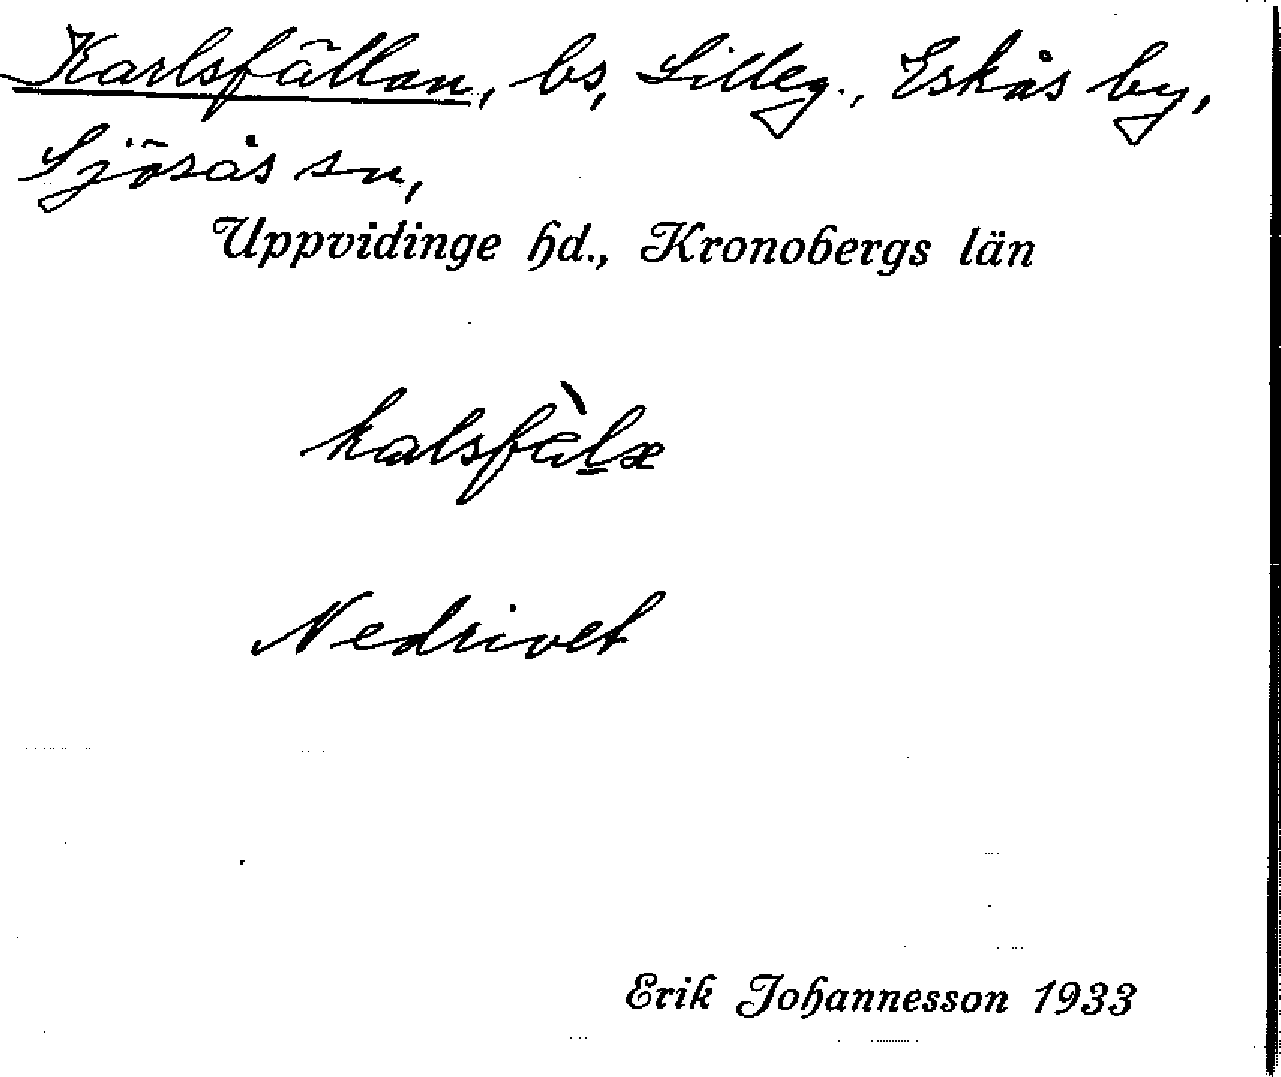 Karlsfällan, bs, Lilleg., Eskås by,
Sjösås sn,
Uppvidinge hd., Kronobergs län
kalsfàlæ
Nedrivet
Erik Johannesson 1933